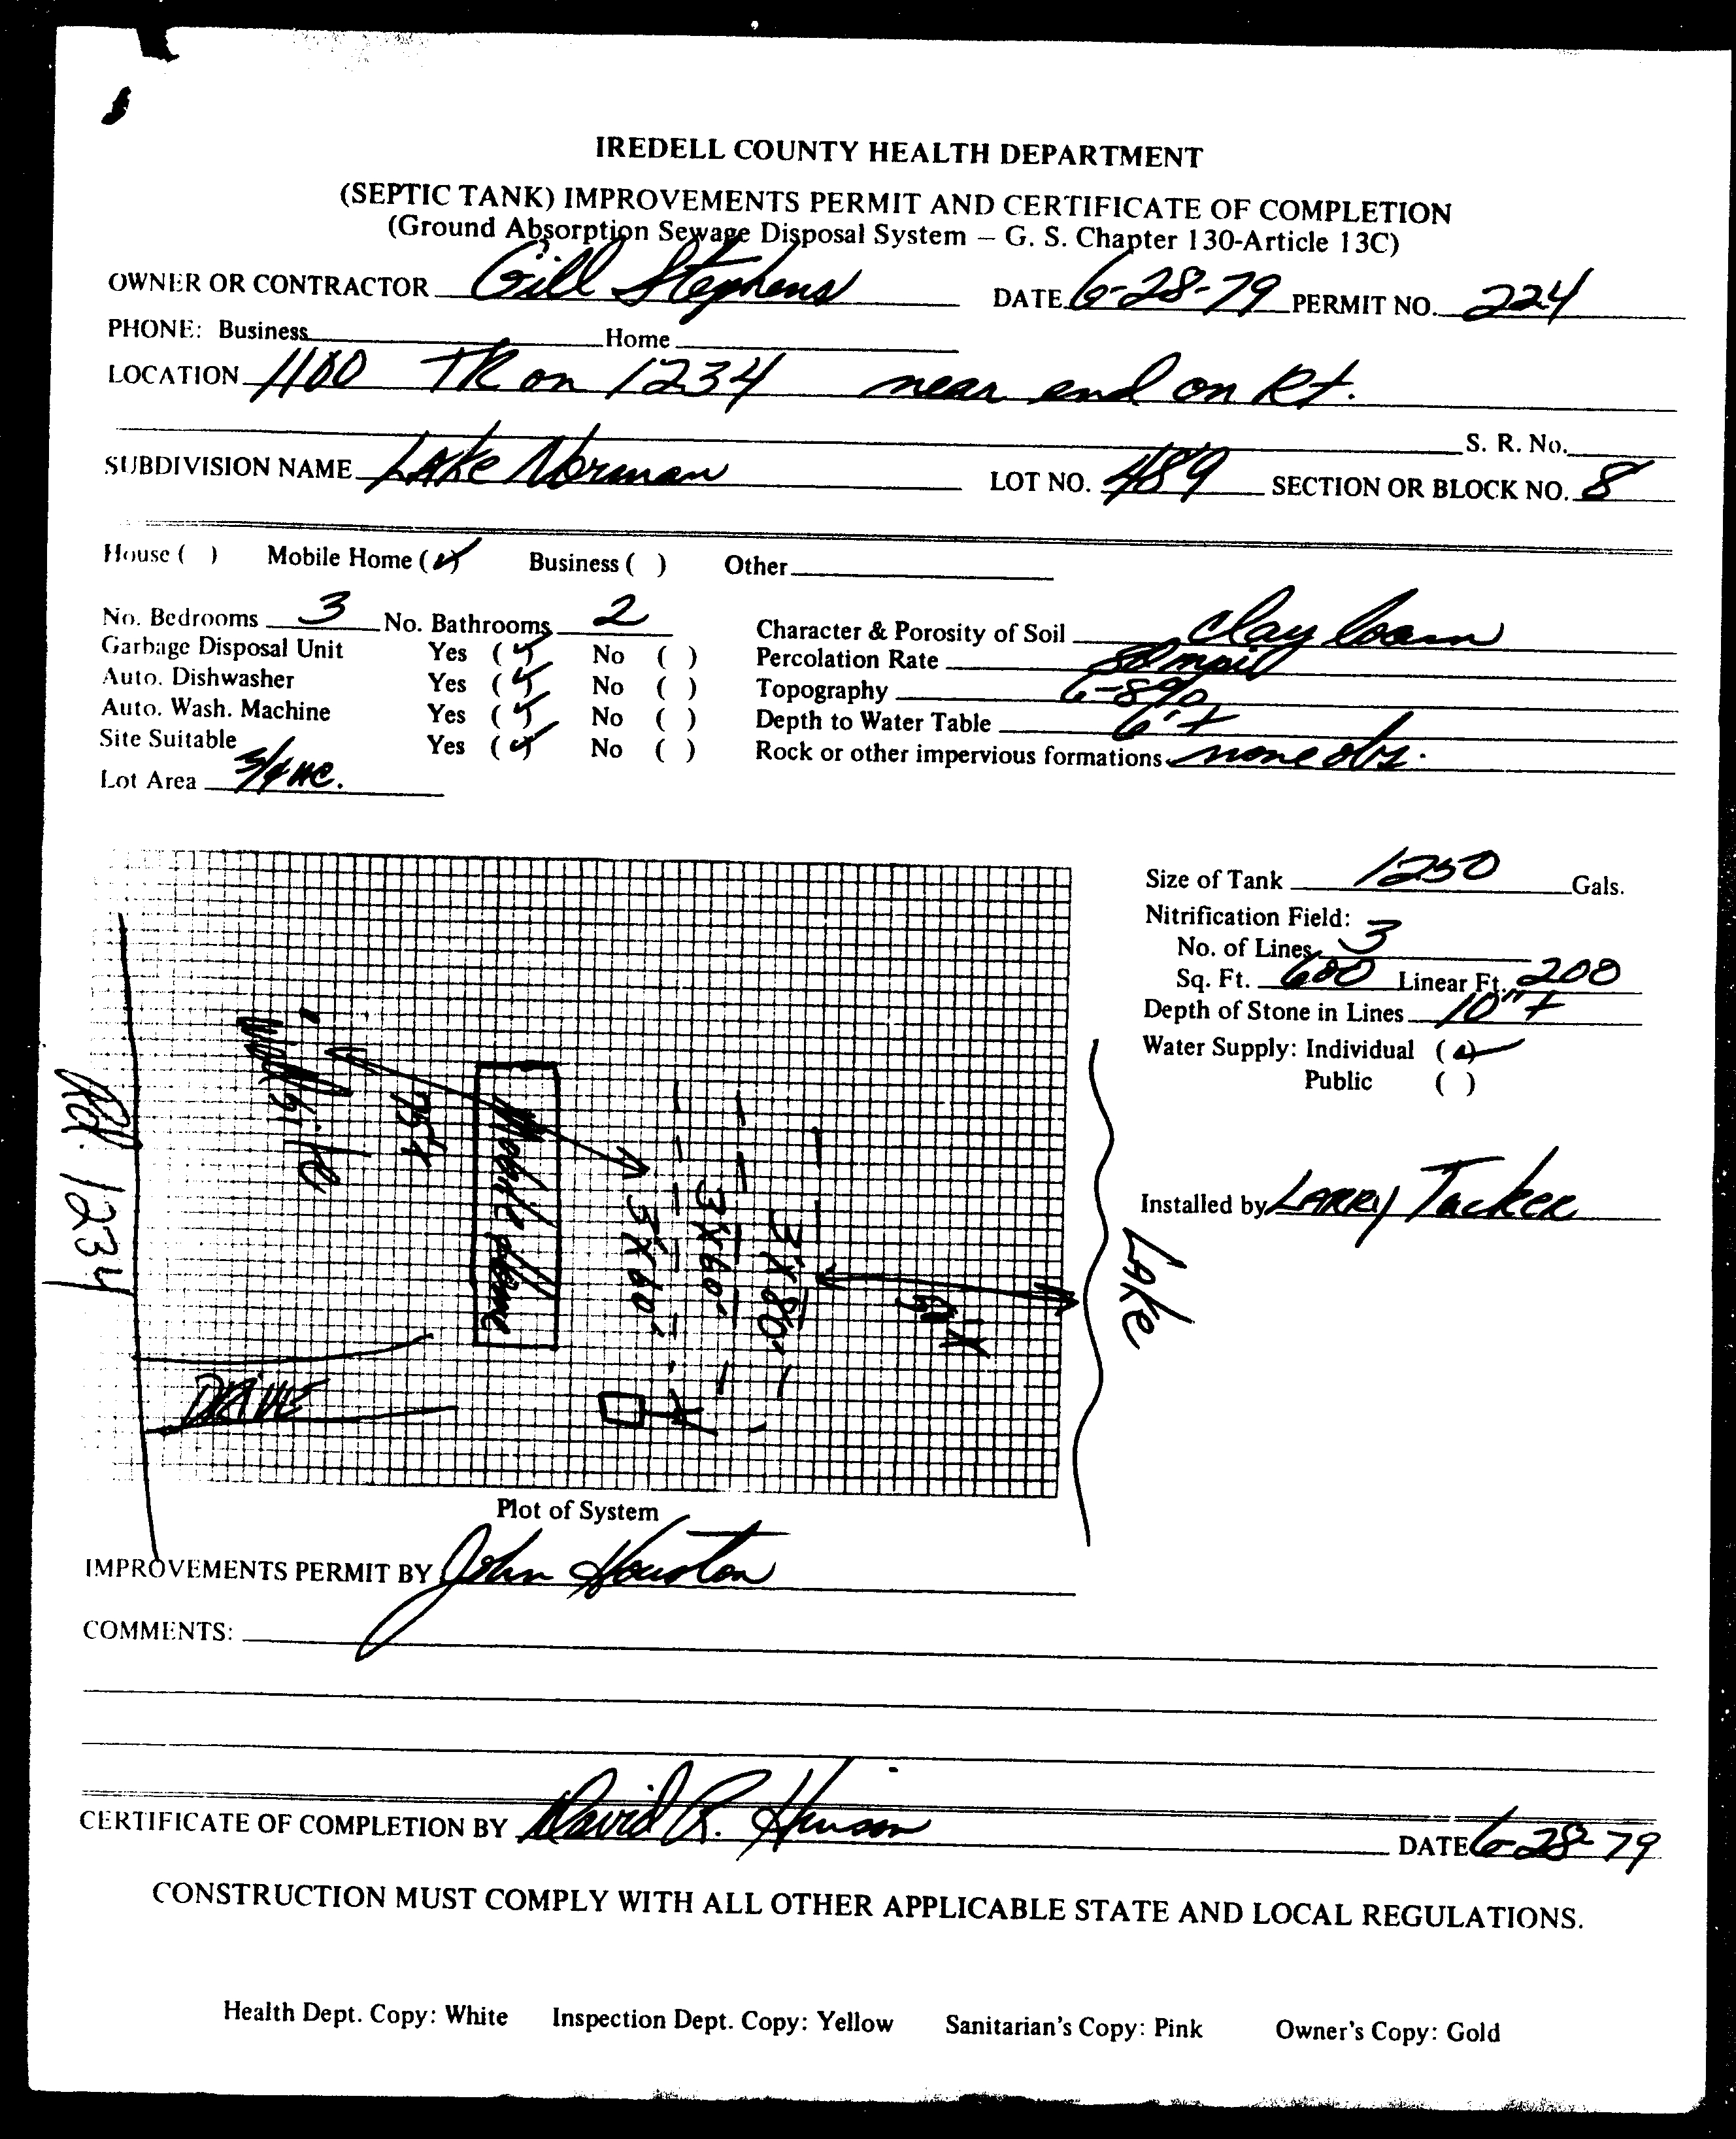 IREDELL COUNTY HEALTH DEPARTMENT
(SEPTIC TANK) IMPROVEMENTS PERMIT AND CERTIFICATE OF COMPLETION
(Ground Absorption Sewage Disposal System – G. S. Chapter 130-Article 13C)
OWNER OR CONTRACTOR Gill Stephens DATE 6-28-79 PERMIT NO. 224
PHONE: Business Home
LOCATION 1100 TR on 1234 near end on Rt.
S. R. No.
SUBDIVISION NAME Lake Norman LOT NO. 489 SECTION OR BLOCK NO. 8
House ( ) Mobile Home (✓) Business ( ) Other
No. Bedrooms 3 No. Bathrooms 2 Character & Porosity of Soil Clay loam
Garbage Disposal Unit Yes (✓) No ( ) Percolation Rate
Auto. Dishwasher Yes (✓) No ( ) Topography 6-8%
Auto. Wash. Machine Yes (✓) No ( ) Depth to Water Table 6'+
Site Suitable Yes (✓) No ( ) Rock or other impervious formations none obs.
Lot Area 3/4 AC.
Size of Tank 1250 Gals.
Nitrification Field:
No. of Lines 3
Sq. Ft. 600 Linear Ft. 200
Depth of Stone in Lines 10"+
Water Supply: Individual (✓)
Public ( )
Installed by LARRY Tucker
Rd. 1234
Well Site
75'+
Mobile Home
3'X60'
3'X60'
3'X80'
Lake
DRIVE
Plot of System
IMPROVEMENTS PERMIT BY John Houston
COMMENTS:
CERTIFICATE OF COMPLETION BY David R. Hinson DATE 6-28-79
CONSTRUCTION MUST COMPLY WITH ALL OTHER APPLICABLE STATE AND LOCAL REGULATIONS.
Health Dept. Copy: White Inspection Dept. Copy: Yellow Sanitarian's Copy: Pink Owner's Copy: Gold